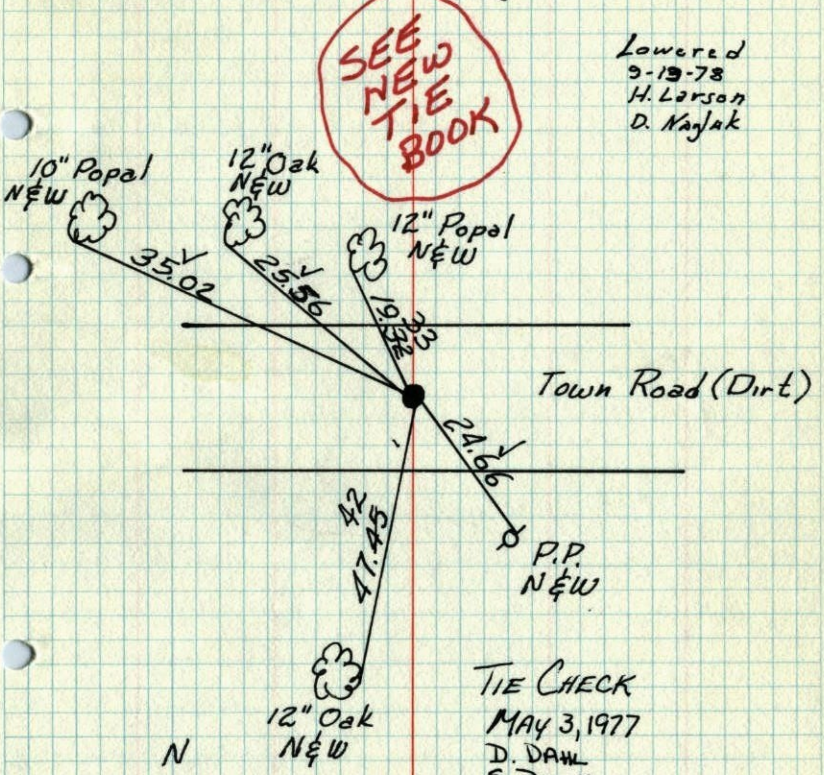 SEE
NEW
TIE
BOOK
Lowered
9-19-78
H. Larson
10" Popal
N&W
12" Oak
N&W
12" Popal
N&W
35.02
25.56
19.32
33
Town Road (Dirt)
24.66
42
47.45
P.P.
N&W
12" Oak
N&W
TIE CHECK
MAY 3, 1977
D. DAHL
N